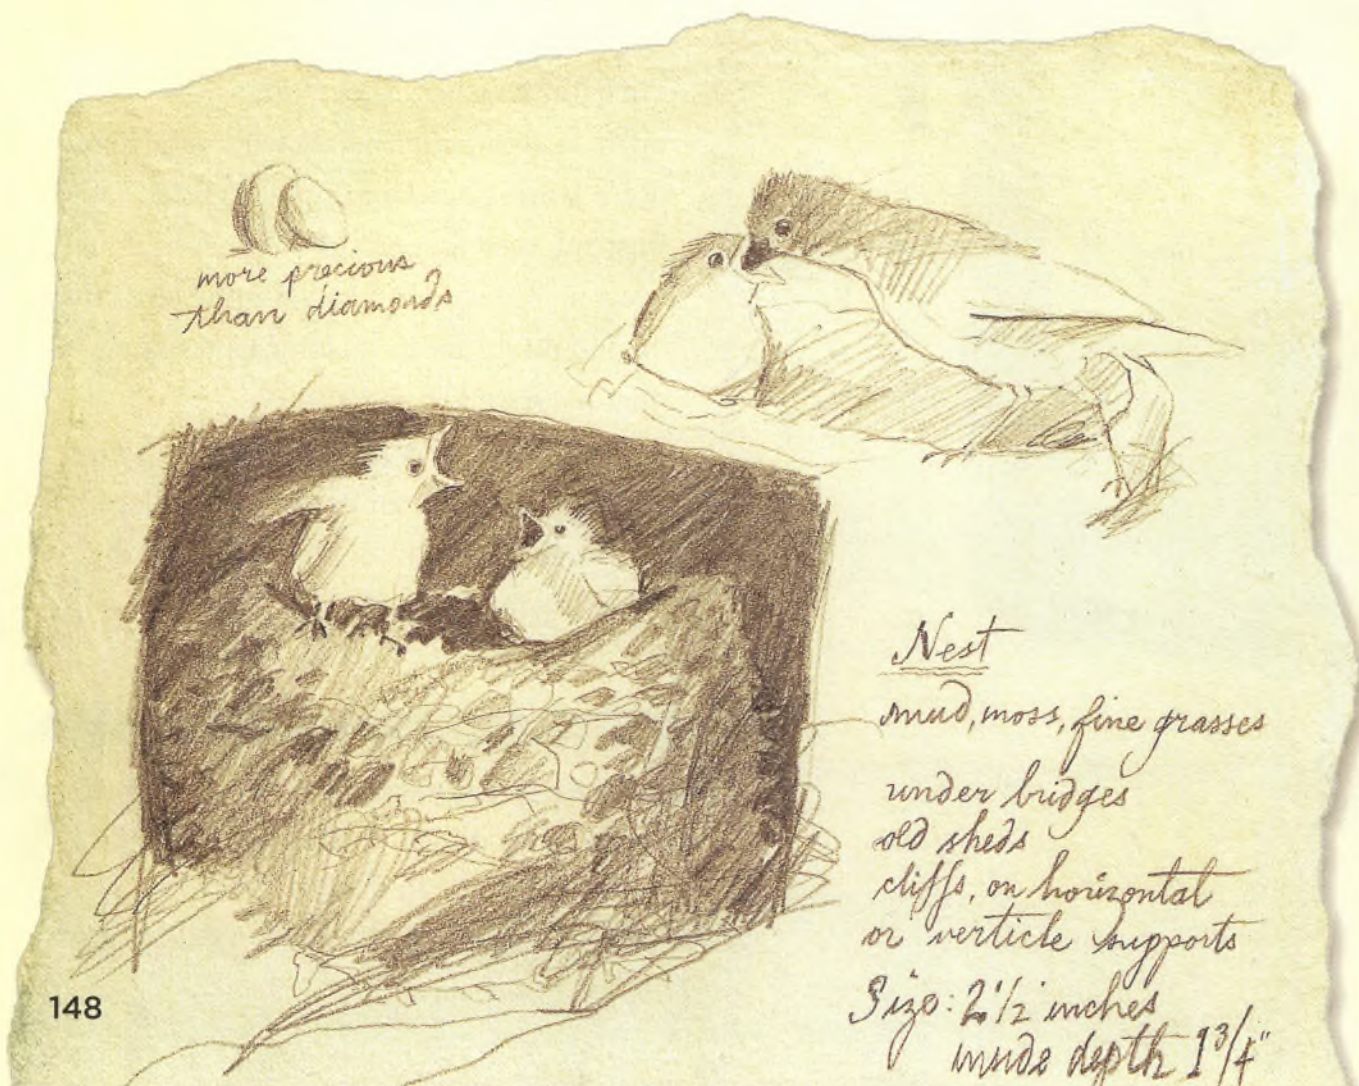 more precious
than diamonds
Nest
mud, moss, fine grasses
under bridges
old sheds
cliffs, on horizontal
or verticle supports
Size: 2 1/2 inches
inside depth 1 3/4"
148